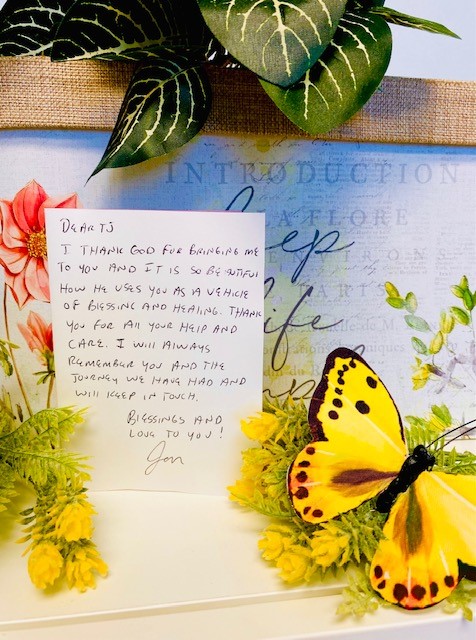 INTRODUCTION
LA FLORE
keep
life
DEAR TJ
I THANK GOD FOR BRINGING ME
TO YOU AND IT IS SO BEAUTIFUL
HOW HE USES YOU AS A VEHICLE
OF BLESSING AND HEALING. THANK
YOU FOR ALL YOUR HELP AND
CARE. I WILL ALWAYS
REMEMBER YOU AND THE
JOURNEY WE HAVE HAD AND
WILL KEEP IN TOUCH.
BLESSINGS AND
LOVE TO YOU!
Jon